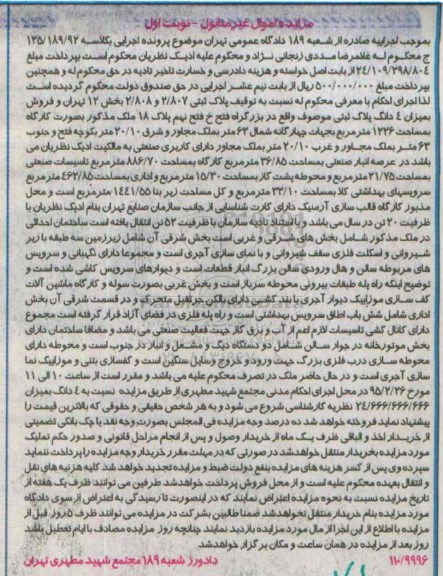 مزایده اموال غیر منقول - نوبت اول
بموجب اجراییه صادره از شعبه ۱۸۹ دادگاه عمومی تهران موضوع پرونده اجرایی بکلاسه ۱۳۵/۱۸۹/۹۲
ج محکوم له غلامرضا مددی زنجانی نژاد و محکوم علیه ادیک نظریان محکوم است بپرداخت مبلغ
۲۴/۱۰۹/۲۹۸/۸۰۴ از بابت اصل خواسته و هزینه دادرسی و خسارت تاخیر تادیه در حق محکوم له و همچنین
بپرداخت مبلغ ۵۰۰/۰۰۰/۰۰۰ ریال از بابت نیم عشر اجرایی در حق صندوق دولت محکوم گردیده است
لذا اجرای احکام با معرفی محکوم له نسبت به توقیف پلاک ثبتی ۲/۸۰۷ و ۲/۸۰۸ بخش ۱۲ تهران و فروش
بمیزان ۴ دانگ پلاک ثبتی موصوف واقع در بزرگراه فتح خ فتح نهم پلاک ۱۸ ملک مذکور بصورت کارگاه
بمساحت ۱۲۲۶ مترمربع بجهات چهارگانه شمال ۶۳ متر بملک مجاور و شرق ۲۰/۱۰ متر بکوچه فتح و جنوب
۶۳ متر بملک مجاور و غرب ۲۰/۱۰ متر بملک مجاور دارای کاربری صنعتی به مالکیت ادیک نظریان می
باشد در عرصه انبار صنعتی بمساحت ۳۶/۸۵ مترمربع کارگاه بمساحت ۸۸۶/۷۰ مترمربع تاسیسات صنعتی
بمساحت ۲۱/۷۵ مترمربع و محوطه پشت کار بمساحت ۱۵/۳۰ مترمربع و اداری بمساحت ۴۶۲/۸۵ مترمربع
سرویسهای بهداشتی کلا بمساحت ۳۳/۱۰ مترمربع و کل مساحت زیر بنا ۱۴۴۱/۵۵ مترمربع است و محل
مذبور کارگاه قالب سازی آرمانیک دارای کارت شناسایی از جانب سازمان صنایع تهران بنام ادیک نظریان با
ظرفیت ۲۰ تن در سال می باشد و با استناد نامه سازمان با ظرفیت ۵۲ تن انتقال یافته است ساختمان احداثی
در ملک مذکور شامل بخش های شرقی و غربی است بخش شرقی آن شامل زیرزمین سه طبقه با زیر
شیروانی و اسکلت فلزی سقف شیروانی و با نمای سازی آجری است و مجموعا دارای نگهبانی و سرویس
های مربوطه سالن و هال ورودی سالن بزرگ انبار قطعات است و دیوارهای سرویس کاشی شده است و
توضیح اینکه راه پله طبقات بیرونی محوطه سرباز است و بخش غربی بصورت سوله و کارگاه ماشین آلات
کف سازی موزاییک دیوار آجری با بند کشی دارای بالکن جرثقیل متحرک و در قسمت شرقی آن بخش
اداری شامل شش باب اطاق سرویس بهداشتی است و راه پله فلزی در فضای آزاد قرار گرفته است مجموع
دارای کانال کشی تاسیسات لازم اعم از آب و برق گاز جهت فعالیت صنعتی می باشد و مضافا ساختمان دارای
بخش موتورخانه در جوار سالن شامل دو دستگاه دیگ و مشعل و انبار در جنوب است و محوطه دارای
محوطه سازی درب فلزی بزرگ جهت ورود و خروج وسایل سنگین است و کفسازی بتنی و موزاییک نما
سازی آجری است و در حال حاضر ملک در تصرف محکوم علیه می باشد و مقرر است از ساعت ۱۰ الی ۱۱
مورخ ۹۵/۲/۲۶ در محل اجرای احکام مدنی مجتمع شهید مطهری از طریق مزایده نسبت به ۴ دانگ بمیزان
۲۴/۶۶۶/۶۶۶/۶۶۶ نظریه کارشناسی شروع می شود و به هر شخص حقیقی و حقوقی که بالاترین قیمت را
پیشنهاد نماید فروخته خواهد شد ده درصد وجه مزایده فی المجلس بصورت وجه نقد یا چک بانکی تضمینی
از خریدار اخذ و الباقی ظرف یک ماه از خریدار وصول و پس از انجام مراحل قانونی و صدور حکم تملیک
مورد مزایده بخریدار منتقل خواهد شد در صورتی که در مهلت مقرر خریدار وجه مزایده را پرداخت ننماید
سپرده وی پس از کسر هزینه های مزایده بنفع دولت ضبط و مزایده تجدید خواهد شد کلیه هزینه های نقل
و انتقال بعهده محکوم علیه است و از محل فروش پرداخت خواهد شد طرفین می توانند ظرف یک هفته از
تاریخ مزایده نسبت به نحوه مزایده اعتراض نمایند که در اینصورت تا رسیدگی به اعتراض از سوی دادگاه
مورد مزایده بنام خریدار منتقل نخواهد شد ضمنا طالبین بشرکت در مزایده می توانند ظرف ۵ روز قبل از
مزایده با اطلاع از این اجرا از مال مورد مزایده بازدید نمایند چنانچه روز مزایده مصادف با ایام تعطیل باشد
روز بعد از مزایده در همان ساعت و مکان برگزار خواهد شد
۱۱۰/۹۹۹۶ دادورز شعبه ۱۸۹ مجتمع شهید مطهری تهران